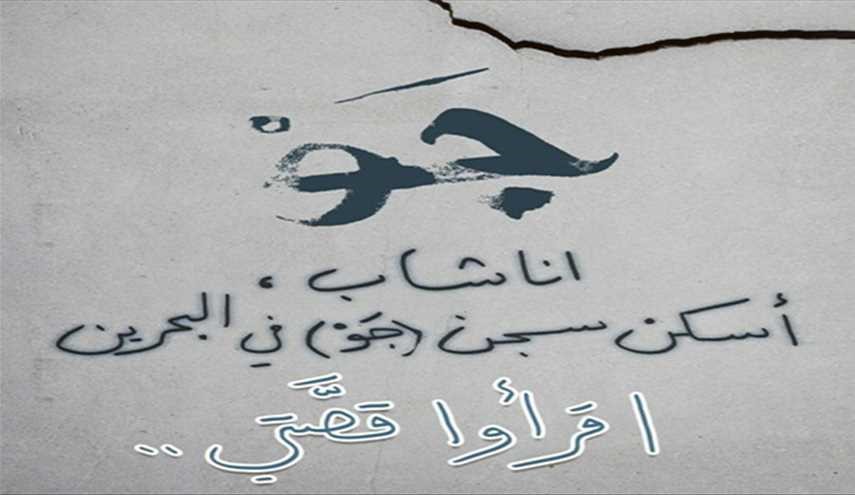 جَوْ
انا شاب ،
أسكن سجن (جَوْ) في البحرين
اقرأوا قصَّتي ..